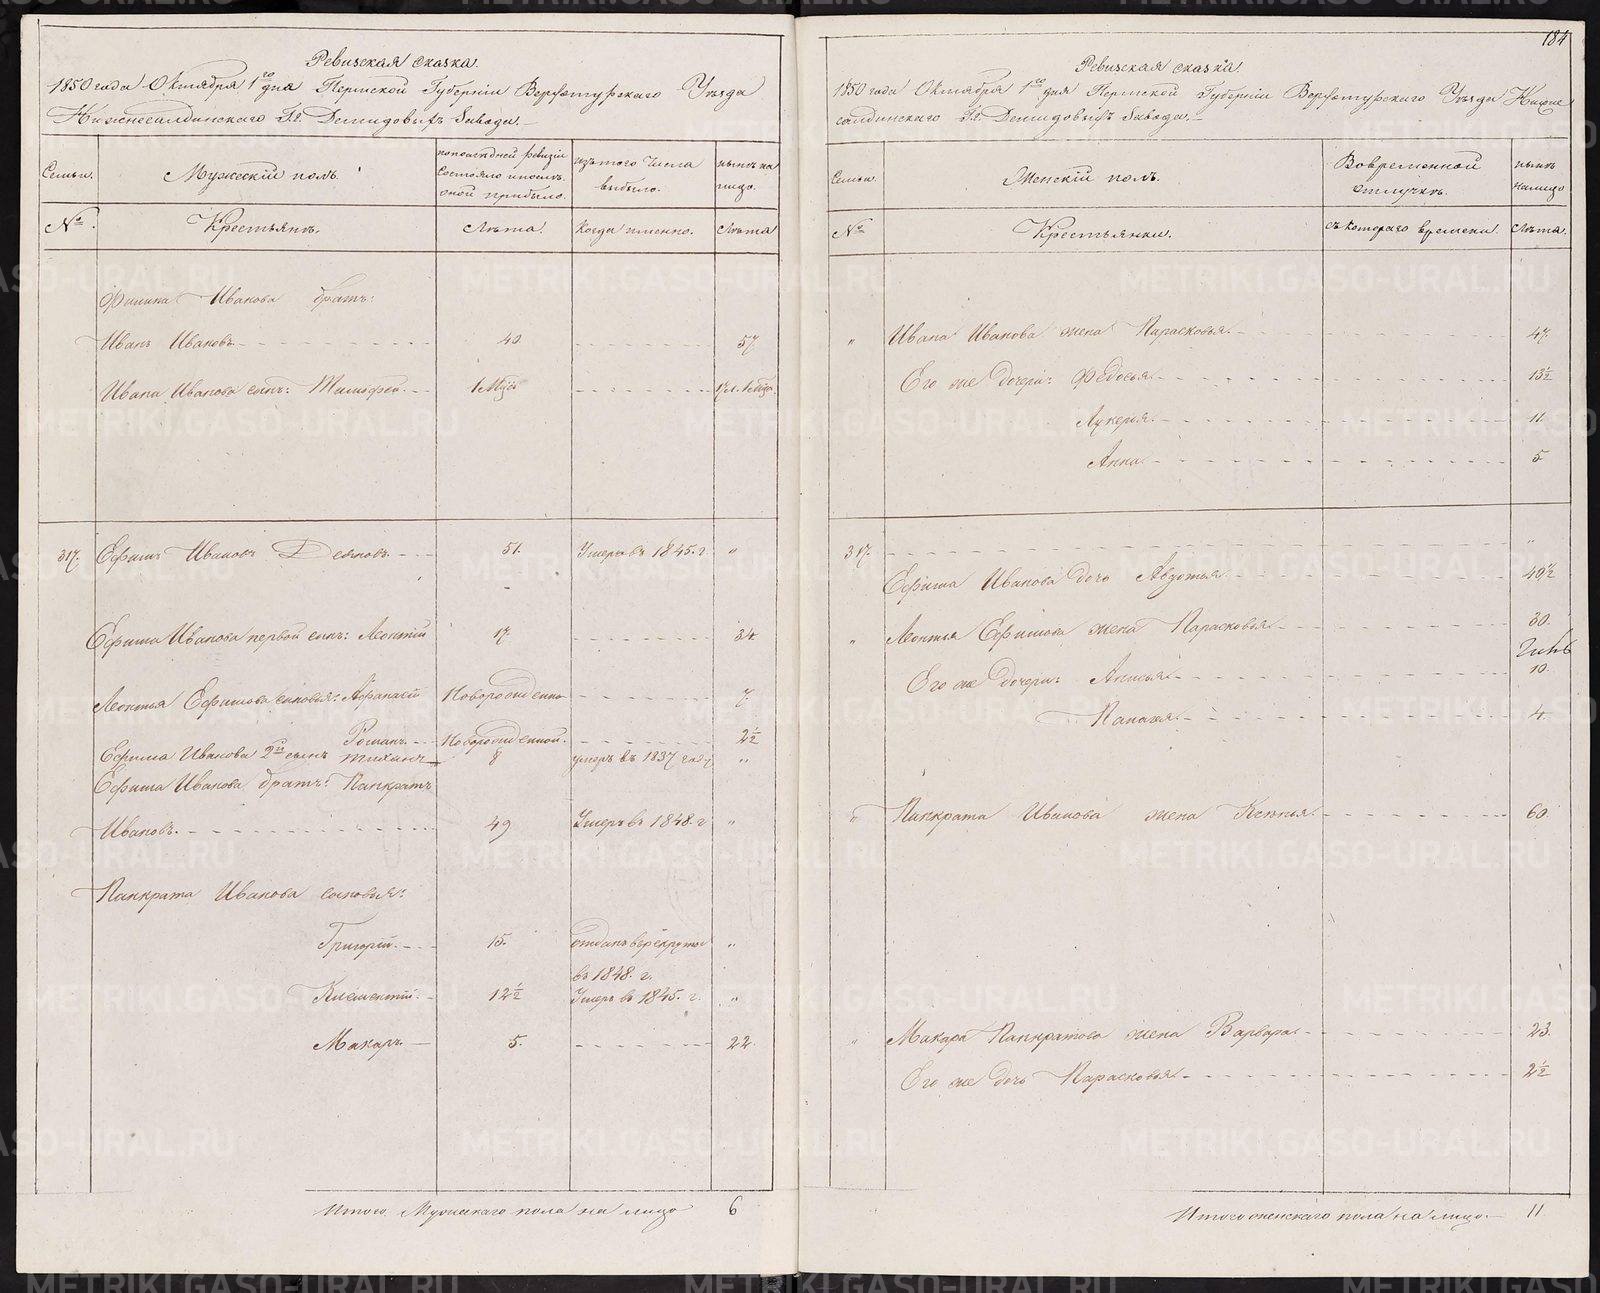 Ревизская сказка.
1850 года Октября 1го дня Пермской Губернии Верхотурскаго Уѣзда
Нижнесалдинскаго Гг. Демидовыхъ Завода.
Семьи.
Мужескій полъ.
по последней ревизіи
состояло и послѣ
оной прибыло.
изъ того числа
выбыло.
нынѣ на
лицо.
№.
Крестьянъ.
Лѣта.
Когда именно.
Лѣта
Иванова братъ:
Иванъ Ивановъ 40 57
Ивана Иванова сынъ: Тимофей
317. Ефимъ Ивановъ 51. Умеръ въ 1845. г. "
Ефима Иванова первой сынъ: Леонтій 17. 34
Леонтья Ефимова сыновья: Афанасій Новорожденно 7.
Романъ. Новорожденной. 2½
Ефима Иванова 2й сынъ Тихонъ 8 умеръ въ 1837 году "
Ефима Иванова братъ: Панкратъ
Ивановъ. 49 Умеръ въ 1848. г "
Панкрата Иванова сыновья:
Григорій. 15. отданъ в рекруты "
въ 1848. г.
Климентій. 12½ Умеръ въ 1845. г. "
Макаръ 5. 22.
Итого Мужескаго пола на лицо 6
184
Ревизская сказка.
1850 года Октября 1го дня Пермской Губернии Верхотурскаго Уѣзда Нижне
салдинскаго Гг. Демидовыхъ Завода.
Семьи.
Женскій полъ.
Во временной
отлучкѣ.
нынѣ
налицо
№
Крестьянки.
съ котораго времени.
Лѣта.
" Ивана Иванова жена Парасковья. 47.
Его же дочери: Федосья. 13½
Лукерья. 11.
Анна. 5
317. "
Ефима Иванова дочь Авдотья. 40½
" Леонтья Ефимова жена Парасковья. 30.
Его же дочери: Анисья. 10.
4.
" Панкрата Иванова жена Ксенья. 60.
" Макара Панкратова жена Варвара. 23.
Его же дочь Парасковья. 2½
Итого женскаго пола на лицо. 11
METRIKI.GASO-URAL.RU